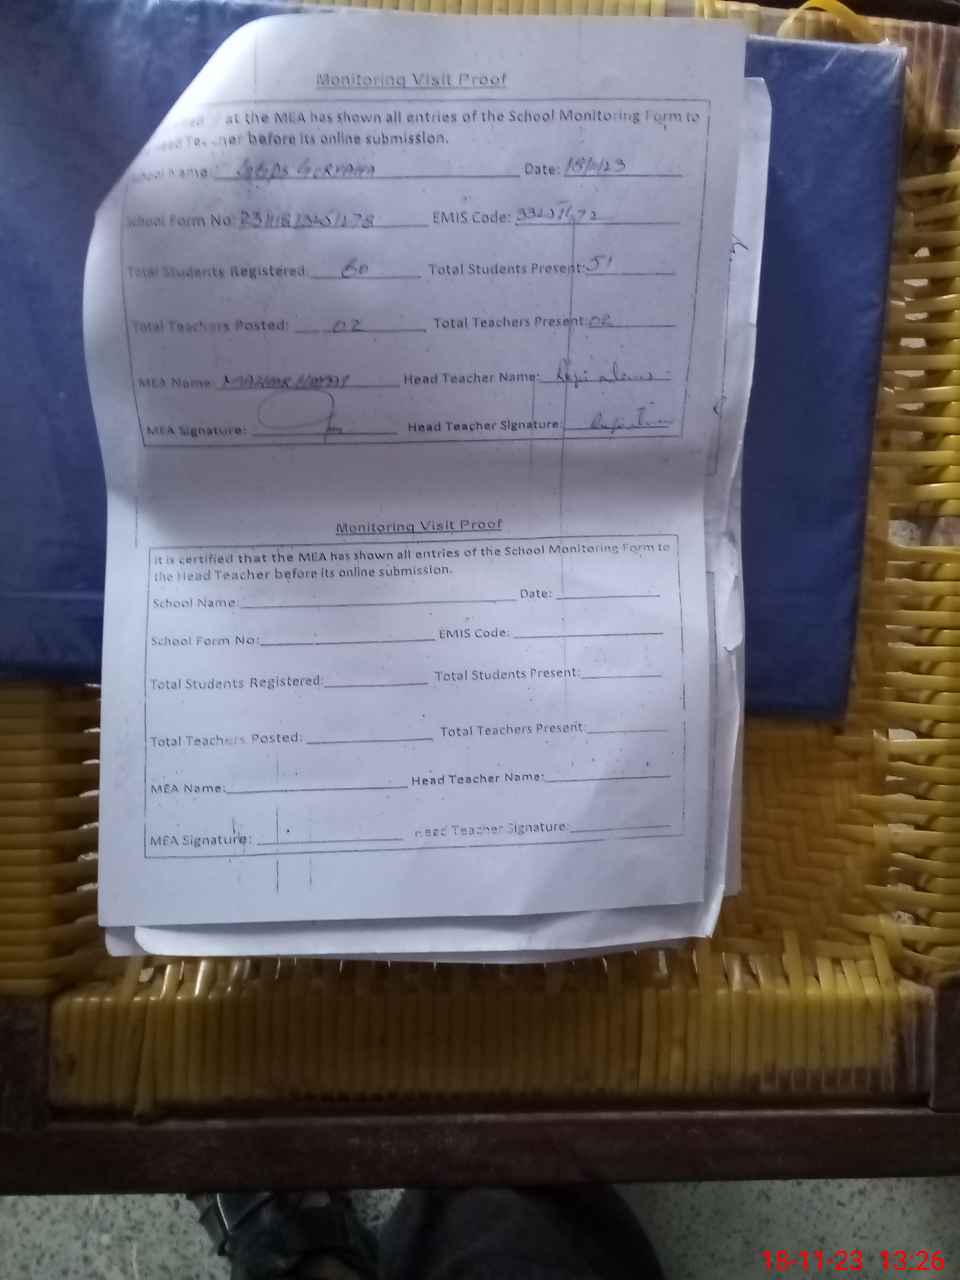 Monitoring Visit Proof
at the MEA has shown all entries of the School Monitoring Form to
before its online submission.
School Name: Date: 18/11/23
School Form No: EMIS Code:
Total Students Registered: 60 Total Students Present: 51
Total Teachers Posted: 02 Total Teachers Present: 02
MEA Name: Head Teacher Name:
MEA Signature: Head Teacher Signature:
Monitoring Visit Proof
It is certified that the MEA has shown all entries of the School Monitoring Form to
the Head Teacher before its online submission.
School Name: Date:
School Form No: EMIS Code:
Total Students Registered: Total Students Present:
Total Teachers Posted: Total Teachers Present:
MEA Name: Head Teacher Name:
MEA Signature: Head Teacher Signature:
18-11-23 13:26